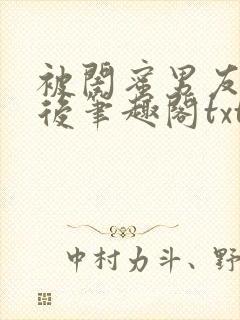 被閤蜜男友
後筆趣閣txt
中村力斗、野